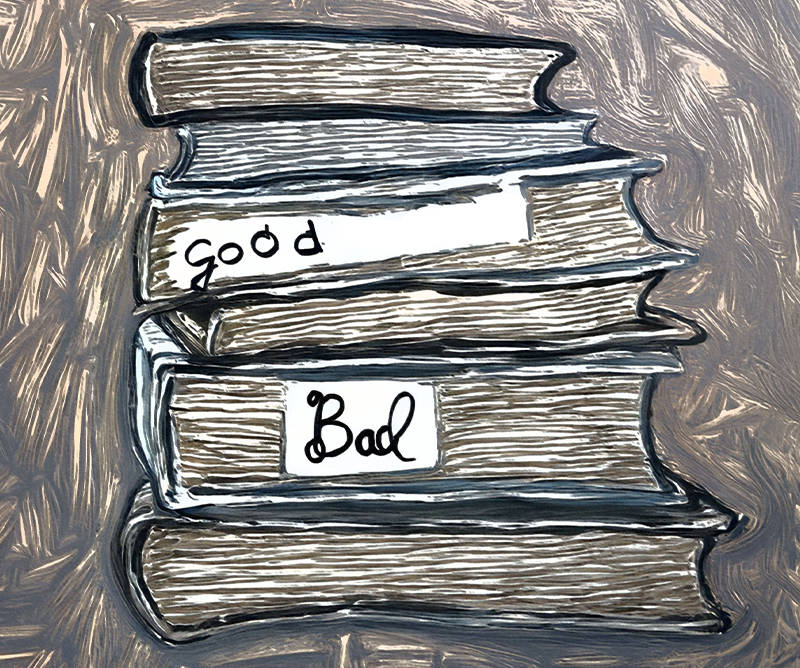 good
Bad